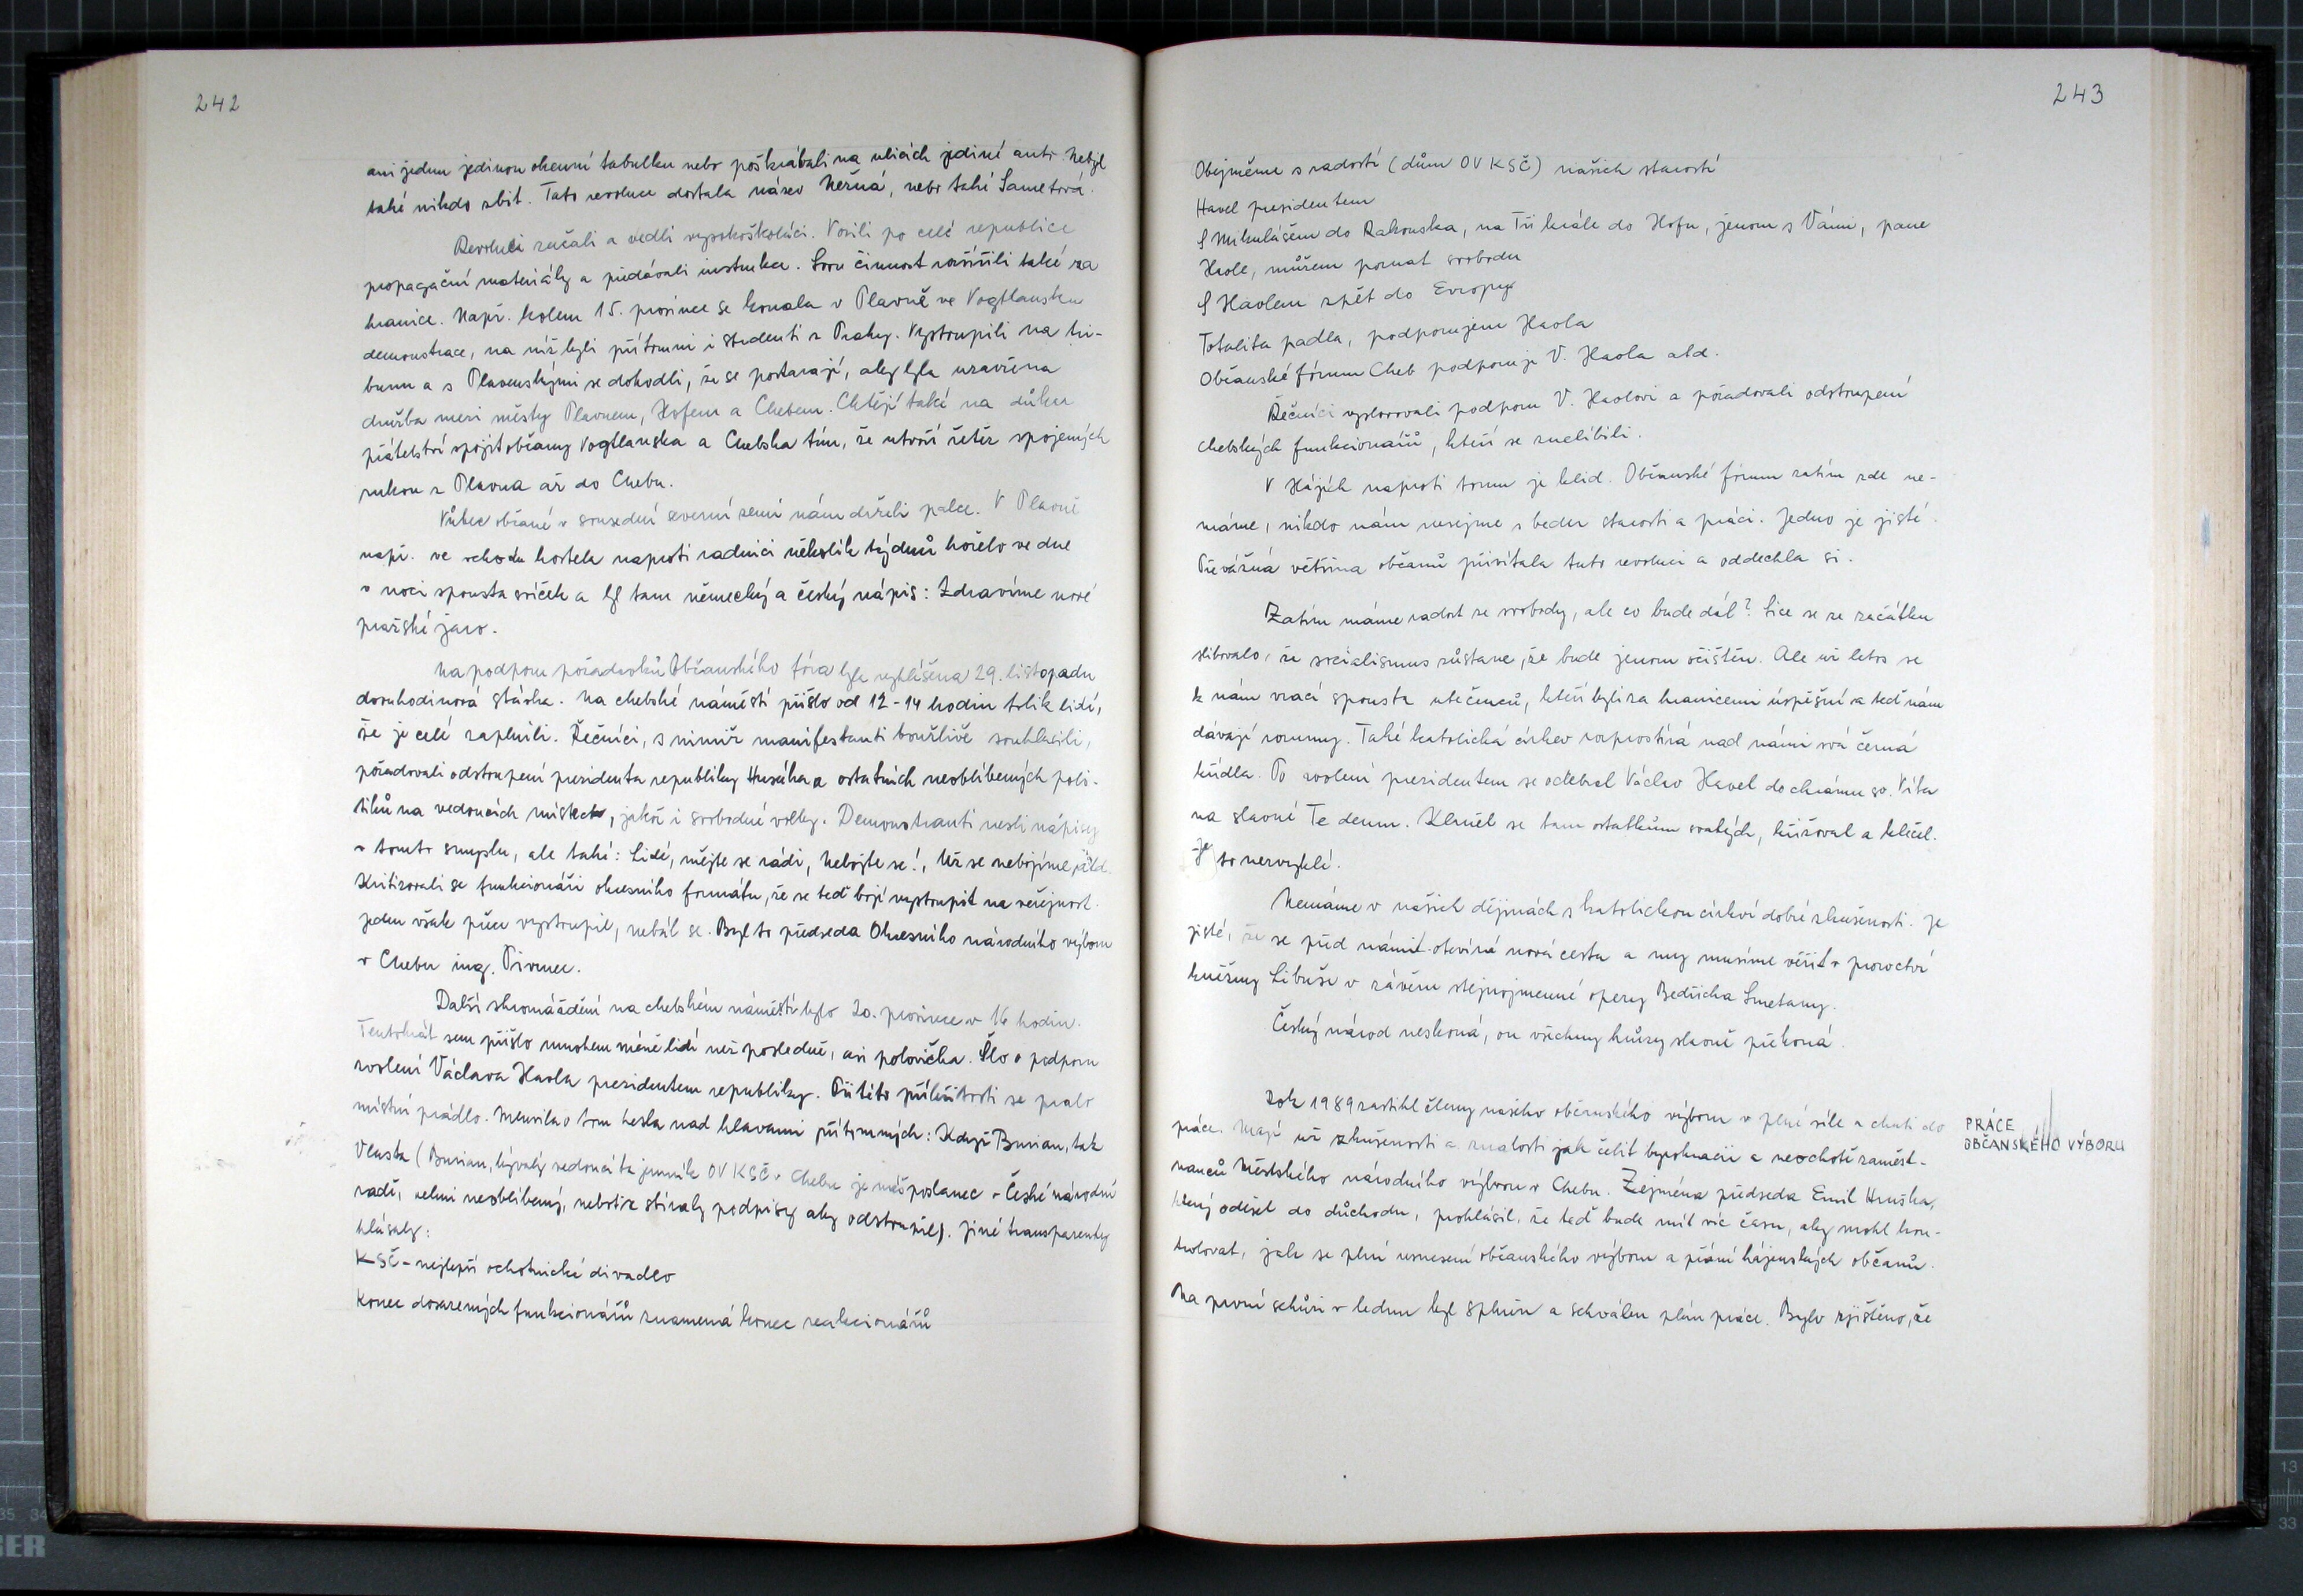 242
ani jednu jedinou okenní tabulku nebo poškrábali na ulicích jediné auto. Nebyl
také nikdo zbit. Tato revoluce dostala název Něžná, nebo také Sametová.
Revoluci začali a vedli vysokoškoláci. Vozili po celé republice
propagační materiály a předávali instrukce. Svou činnost rozšířili také za
hranice. Např. kolem 15. prosince se konala v Plavně ve Vogtlansku
demonstrace, na níž byli přítomni i studenti z Prahy. Vystoupili na tri-
bunu a s Plavenskými se dohodli, že se postarají, aby byla uzavřena
družba mezi městy Plavnem, Hofem a Chebem. Chtějí také na důkaz
přátelství spojit občany Vogtlanska a Chebska tím, že utvoří řetěz spojených
rukou z Plavna až do Chebu.
Vůbec občané v sousední severní zemi nám drželi palce. V Plavně
např. ve vchodu kostela naproti radnici několik týdnů hořelo ve dne
v noci spousta svíček a byl tam německý a český nápis: Zdravíme nové
pražské jaro.
Na podporu požadavků Občanského fóra byla vyhlášena 29. listopadu
dvouhodinová stávka. Na chebské náměstí přišlo od 12-14 hodin tolik lidí,
že je celé zaplnili. Řečníci, s nimiž manifestanti bouřlivě souhlasili,
požadovali odstoupení prezidenta republiky Husáka a ostatních neoblíbených poli-
tiků na vedoucích místech, jakož i svobodné volby. Demonstranti nesli nápisy
v tomto smyslu, ale také: Lidé, mějte se rádi, Nebojte se!, Už se nebojíme, atd.
Kritizovali se funkcionáři okresního formátu, že se teď bojí vystoupit na veřejnost.
Jeden však přece vystoupil, nebál se. Byl to předseda Okresního národního výboru
v Chebu ing. Pivrnec.
Další shromáždění na chebském náměstí bylo 20. prosince v 16 hodin.
Tentokrát sem přišlo mnohem méně lidí než posledně, asi polovička. Šlo o podporu
zvolení Václava Havla prezidentem republiky. Při této příležitosti se pralo
místní prádlo. Mluvila o tom hesla nad hlavami přítomných: Když Burian, tak
Vlasta (Burian, bývalý vedoucí tajemník OV KSČ v Chebu je náš poslanec v České národní
radě, velmi neoblíbený, nebotiž stíraly podpisy aby odstoupil). Jiné transparenty
hlásaly:
KSČ - nejlepší ochotnické divadlo
Konec dosazených funkcionářů znamená konec reakcionářů
243
Obejměme s radostí (dům OV KSČ) našich starostí
Havel presidentem
S Mikulášem do Rakouska, na Tři krále do Hofu, jenom s Vámi, pane
Havle, můžem poznat svobodu
S Havlem zpět do Evropy
Totalita padla, podporujem Havla
Občanské fórum Cheb podporuje V. Havla atd.
Řečníci vyslovovali podporu V. Havlovi a požadovali odstoupení
chebských funkcionářů, kteří se znelíbili.
V Hájích naproti tomu je klid. Občanské fórum zatím zde ne-
máme, nikdo nám nesejme z beder starosti a práci. Jedno je jisté.
Převážná většina občanů přivítala tuto revoluci a oddechla si.
Zatím máme radost ze svobody, ale co bude dál? Sice se ze začátku
slibovalo, že socialismus zůstane, že bude jenom očištěn. Ale už letos se
k nám vrací spousta utečenců, kteří byli za hranicemi úspěšní a teď nám
dávají rozumy. Také katolická církev rozprostírá nad námi svá černá
křídla. Po zvolení prezidentem se odebral Václav Havel do chrámu sv. Víta
na slavné Te deum. Klaněl se tam ostatkům svatých, křižoval a klečel.
Je to nezvyklé.
Nemáme v našich dějinách s katolickou církví dobré zkušenosti. Je
jisté, že se před námi otevírá nová cesta a my musíme věřit v proroctví
kněžny Libuše v závěru stejnojmenné opery Bedřicha Smetany.
Český národ neskoná, on všechny hrůzy slavně překoná.
Rok 1989 zastihl členy našeho občanského výboru v plné síle a chuti do
práce. Mají už zkušenosti a znalosti jak čelit byrokracii a neochotě zaměst-
nanců Městského národního výboru v Chebu. Zejména předseda Emil Hruška,
který odešel do důchodu, prohlásil, že teď bude mít víc času, aby mohl kon-
trolovat, jak se plní usnesení občanského výboru a přání hájenských občanů.
Na první schůzi v lednu byl splněn a schválen plán práce. Bylo zjištěno, že
PRÁCE
OBČANSKÉHO VÝBORU